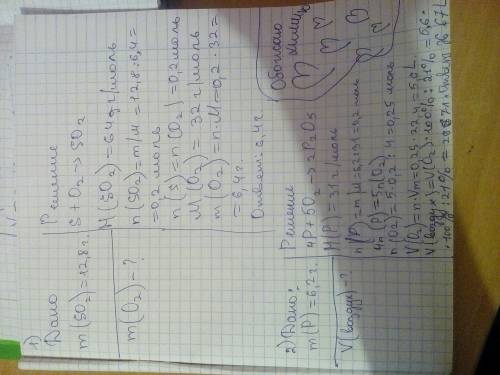 1)
Дано
m(SO2)=12,8г.
m(O2)-?
Решение
S+O2→SO2
M(SO2)=64г/моль
n(SO2)=m/M=12,8:64=
=0,2 моль
n(S)=n(O2)=0,2моль
M(O2)=32г/моль
m(O2)=n·M=0,2·32=
=6,4г.
Ответ: 6,4г
2)Дано:
m(P)=6,2г.
V(воздух)-?
Решение
4P+5O2→2P2O5
M(P)=31г/моль
n(P)=m/M=6,2:31=0,2 моль
4n(P)=5n(O2)
n(O2)=5·0,2:4=0,25 моль
V(O2)=n·Vm=0,25·22,4=5,6л.
V(воздух)=V(O2)·100%:21%=5,6·
·100%:21%=26,67л Ответ: 26,67л
Обожаю
химию